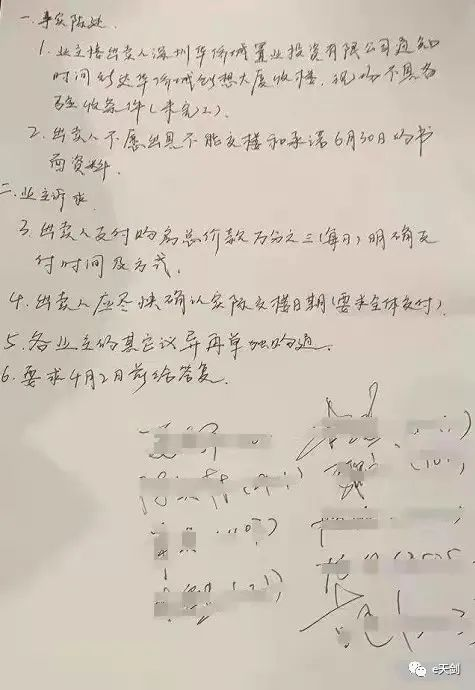 一.事实陈述.
1.业主接出卖人深圳华侨城置业投资有限公司通知
时间到达华侨城创想大厦收楼.现场不具备
验收条件(未完工).
2.出卖人不愿出具不能交楼和承诺6月30日的书
面资料.
二.业主诉求.
3.出卖人支付购房总价款万分之三(每日),明确支
付时间及方式.
4.出卖人应尽快确认实际交楼日期(要求全体交付).
5.各业主的其它议异再单独沟通.
6.要求4月2日前给答复.
e天剑